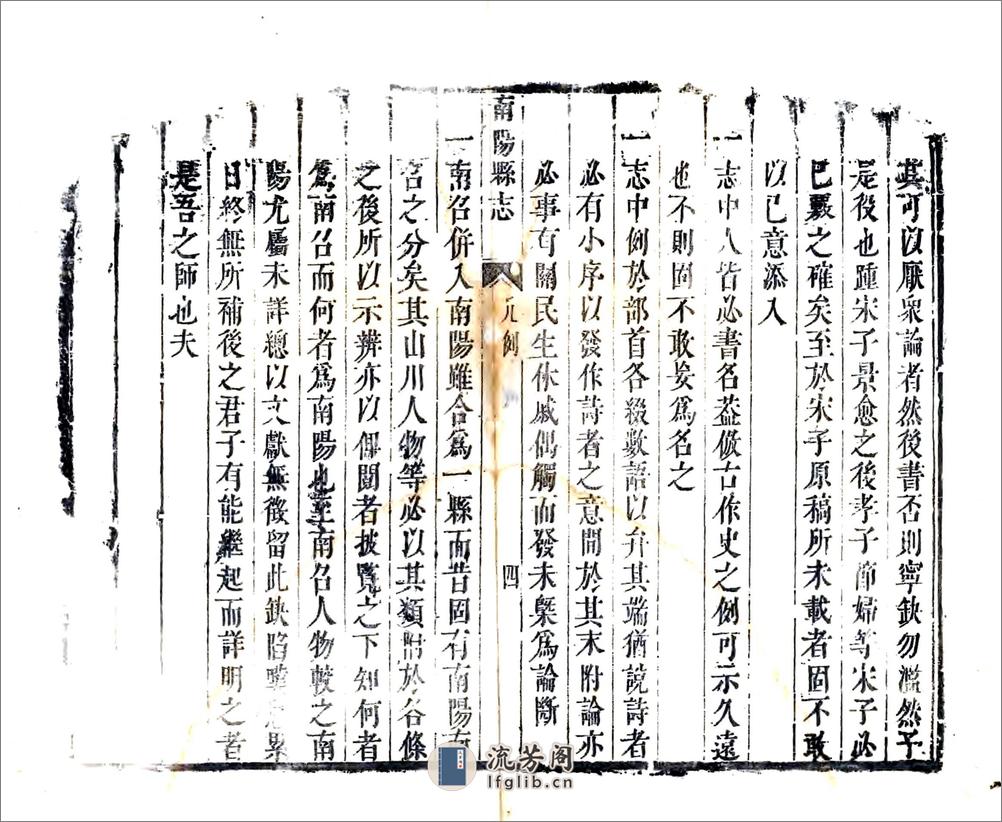 其可以厭衆論者然後書否則寧缺勿濫然予
是役也踵宋子景愈之後孝子節婦等宋子必
已覈之確矣至於宋子原稿所未載者固不敢
以已意添入
一志中人皆必書名葢倣古作史之例可示久遠
也不則固不敢妄爲名之
一志中例於部首各綴數語以弁其端猶說詩者
必有小序以發作詩者之意間於其末附論亦
必事有關民生休戚偶觸而發未槩爲論斷
南陽縣志
凡例
四
一南召併入南陽雖合爲一縣而昔固有南陽南
召之分矣其山川人物等必以其類附於各條
之後所以示辨亦以俾閱者披覽之下知何者
爲南召而何者爲南陽也至南召人物較之南
陽尤屬未詳總以文獻無徵留此缺陷
日終無所補後之君子有能繼起而詳明之者
是吾之師也夫
流芳阁
lfglib.cn